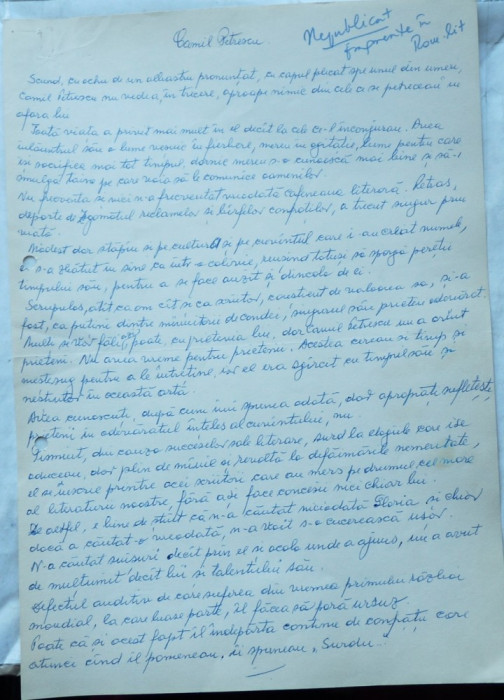 Camil Petrescu.
Nepublicat
fragmente în
Rom. lit
Scund, cu ochii de un albastru pronunțat, cu capul plecat spre unul din umeri,
Camil Petrescu nu vedea, în trecere, aproape nimic din cele ce se petreceau în
afara lui.
Toată viața a privit mai mult în el decît la cele ce-l înconjurau. Avea
înlăuntrul său o lume veșnic în fierbere, mereu în agitație, lume pentru care
își sacrifica mai tot timpul, dornic mereu s-o cunoască mai bine și să-i
smulgă taine pe care voia să le comunice oamenilor.
Nu frecventa și nici n-a frecventat niciodată cafeneaua literară. Retras,
departe de zgomotul reclamelor și bîrfelor confraților, a trecut singur prin
viață.
Modest dar stăpîn și pe cultura și pe cuvîntul care i-au creat numele,
s-a zbătut în sine ca într-o colivie, reușind totuși să spargă pereții
timpului său, pentru a se face auzit și dincolo de ei.
Scrupulos, atît ca om cît și ca scriitor, conștient de valoarea sa, și-a
fost, ca puțini dintre mînuitorii de condei, singurul său prieten adevărat.
Mulți se vor făli, poate, cu prietenia lui, dar Camil Petrescu nu a avut
prieteni. Nu avea vreme pentru prietenie. Acestea cereau și timp și
meșteșug pentru a le întreține, iar el era zgîrcit cu timpul său și
neștiutor în această artă.
Avea cunoscuți, după cum îmi spunea odată, dar apropiați sufletește,
prieteni în adevăratul înțeles al cuvîntului, nu.
Timorat, din cauza succeselor sale literare, surd la elogiile care i se
aduceau, dar plin de mînie și revoltă la defăimările nemeritate,
el se înscrie printre acei scriitori care au mers pe drumul cel mare
al literaturii noastre, fără a-și face concesii nici chiar lui.
De altfel, e bine de știut că n-a căutat niciodată gloria și chiar
dacă a căutat-o vreodată, n-a voit s-o cucerească ușor.
N-a căutat suișuri decît prin el și acolo unde a ajuns, nu a avut
de mulțumit decît lui și talentului său.
Defectul auditiv de care suferea din vremea primului război
mondial, la care luase parte, îl făcea să pară ursuz.
Poate că și acest fapt îl îndepărta continu de confrații care
atunci cînd îl pomeneau, îi spuneau „Surdu".